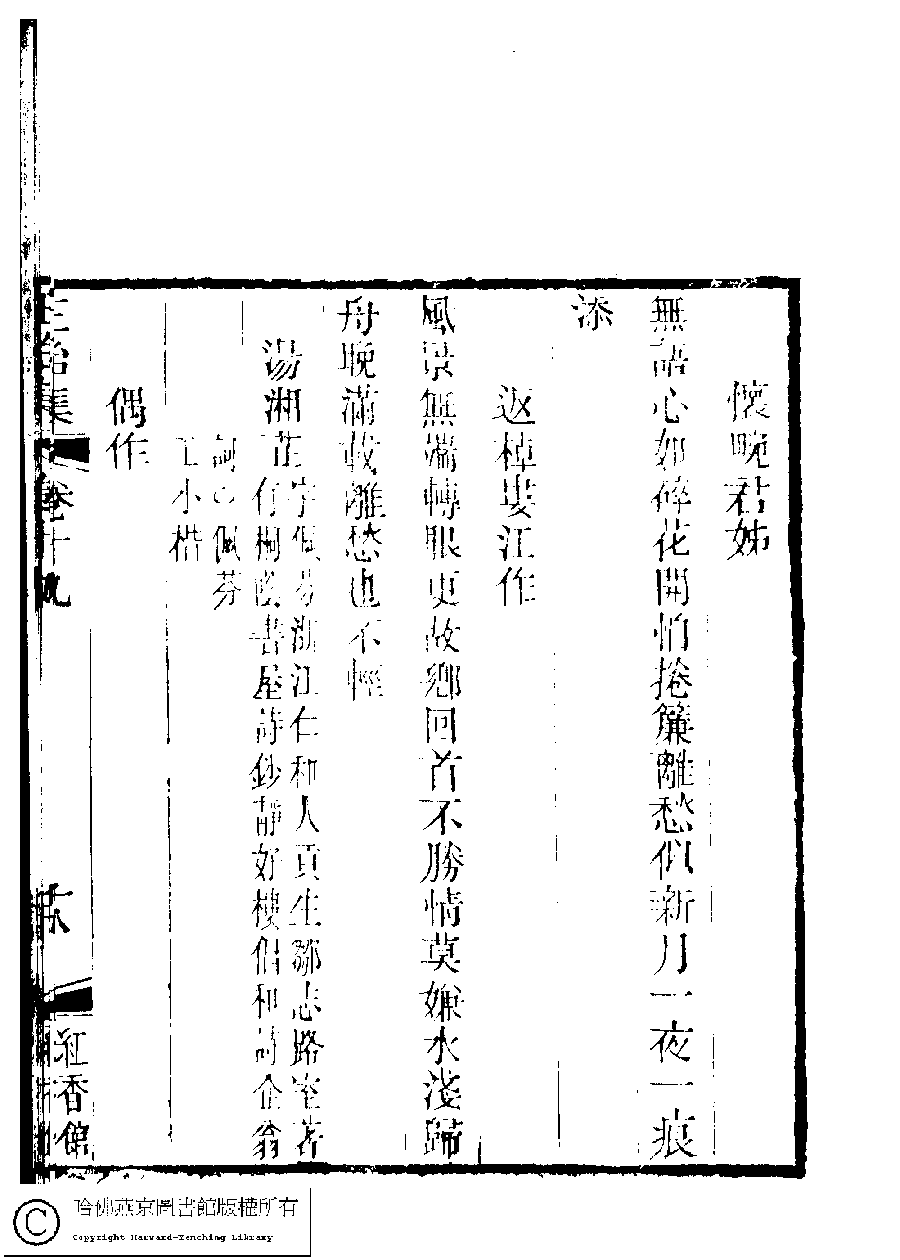 懷畹君姊
無語心如碎花開怕捲簾離愁似新月一夜一痕
添
返棹婁江作
風景無端轉眼更故鄉回首不勝情莫嫌水淺歸
舟晚滿載離愁也不輕
湯湘芷字佩芬浙江仁和人貢生鄒志路室著
有桐陰書屋詩鈔靜好樓倡和詩企翁
詞 佩芬
工小楷
偶作
正始集 卷十九 紅香館
哈佛燕京圖書館版權所有
Copyright Harvard-Yenching Library